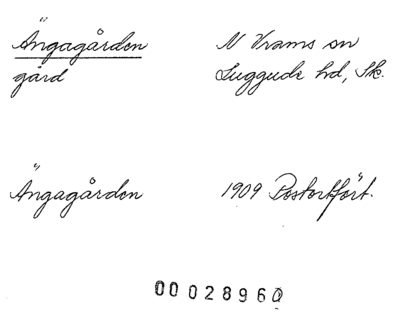 Ängagården N Vrams sn
gård Luggude hd, Sk.
Ängagården 1909 Postortfört.
00028960